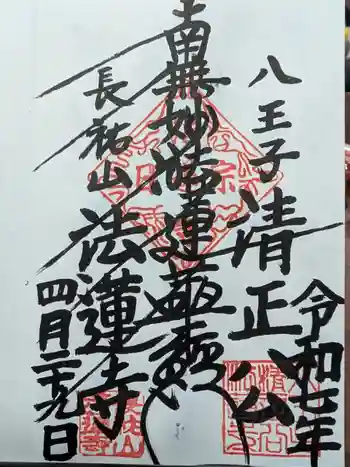 令和七年
八王子清正公
南無妙法蓮華経
長祐山法蓮寺
四月二十九日